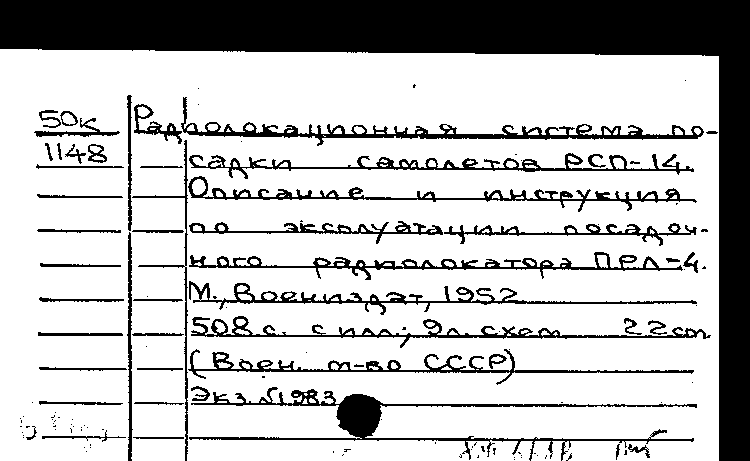 50к
1148
Радиолокационная система по-
садки самолетов РСП-14.
Описание и инструкция
по эксплуатации посадоч-
ного радиолокатора ПРЛ-4.
М., Воениздат, 1952
508 с. с илл.; 9л. схем 22 см.
(Воен. м-во СССР)
Экз. №1983